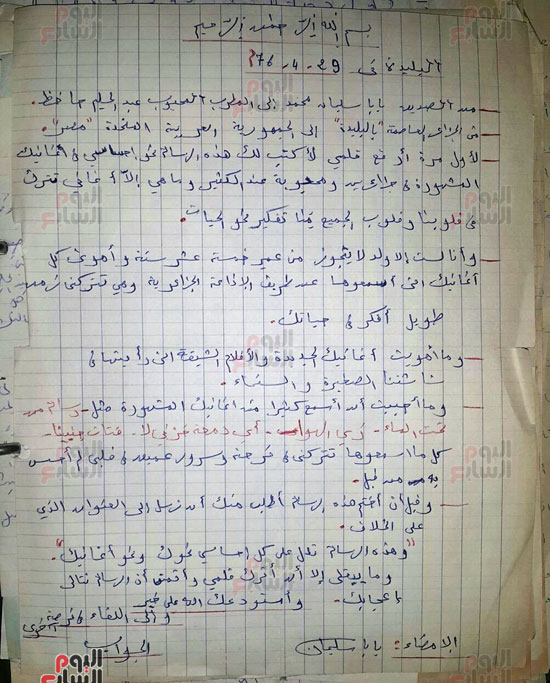 بسم الله الرحمن الرحيم
البليدة في 29-4-76
من الصديق بابا سليمان محمد إلى المطرب المحبوب عبد الحليم حافظ.
من الجزائر العاصمة "بالبليدة" إلى الجمهورية العربية المتحدة "مصر".
لأول مرة أرفع قلمي لأكتب لك هذه الرسالة نحو إحساسي في أغانيك
المشهورة في الجزائر ومحبوبة عند الكثير وما هي إلا أغاني تترك
في قلوبنا وقلوب الجميع تفكير نحو الحياة.
وأنا لست إلا ولد لا يتجوز من عمري خمسة عشر سنة وأهوى كل
أغانيك التي أسمعوها عن طريق الإذاعة الجزائرية وهي تتركني زمن
طويل أفكر في حياتك.
وما أهويت أغانيك الجديدة والأفلام الشيقة التي رأيتها في
شاشتنا الصغيرة والسنماء.
وما أحببت أن أسمع كثيرا من أغانيك المشهورة مثل - رسالة من
تحت الماء - زي الهواء - أي دمعة حزن لا - فتات جنبنا -
كل ما اسمعوها تتركني في فرحة وسرور عميق في قلبي لم أحس
به من قبل.
وقبل أن أختم هذه الرسالة أطلب منك أن ترسل إلى العنوان الذي
على الغلاف.
"وهذه الرسالة تدل على كل إحساسي نحوك ونحو أغانيك"
وما يبقى إلا أن أترك قلمي وأتمنى أن الرسالة تنال
إعجابك. وأستودعك الله على خير
وإلى اللقاء في فرصة أخرى
الإمضاء: بابا سليمان
الجواب
اليوم السابع